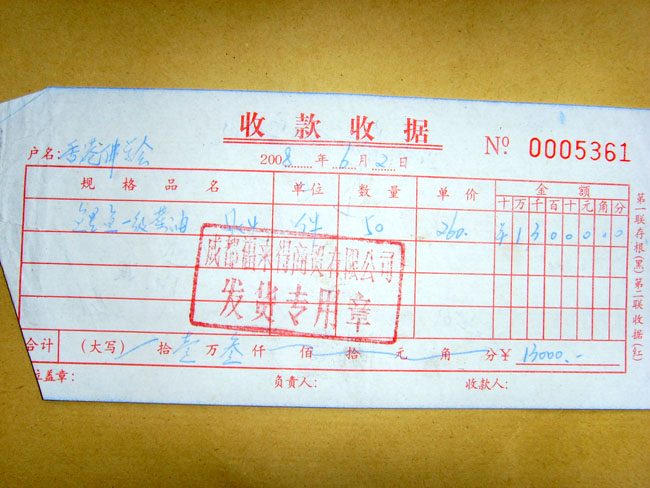 收款收据
户名：香港佛学会 2008年6月2日 Nº 0005361
规格品名 单位 数量 单价 金额
十 万 千 百 十 元 角 分
一级菜油 件 50 260. ¥ 1 3 0 0 0 0 0
成都福来得商贸有限公司
发货专用章
合计 (大写) 拾壹万叁仟 佰 拾 元 角 分¥ 13000.-
位盖章： 负责人： 收款人：
第一联存根(黑)第二联收据(红)